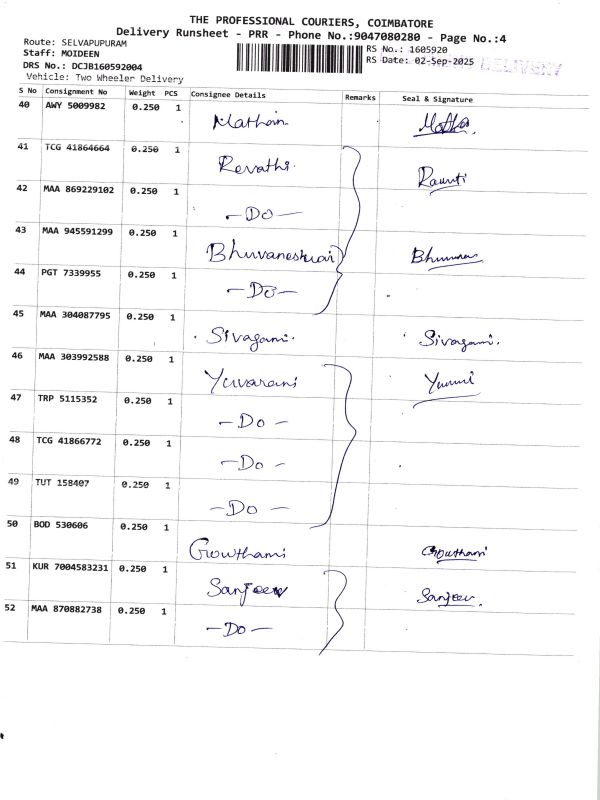 THE PROFESSIONAL COURIERS, COIMBATORE
Delivery Runsheet - PRR - Phone No.:9047080280 - Page No.:4
Route: SELVAPUPURAM
RS No.: 1605920
Staff: MOIDEEN
RS Date: 02-Sep-2025
DELIVERY
DRS No.: DCJB160592004
Vehicle: Two Wheeler Delivery
S No Consignment No Weight PCS Consignee Details Remarks Seal & Signature
40 AWY 5009982 0.250 1
Mathan
41 TCG 41864664 0.250 1
Revathi
42 MAA 869229102 0.250 1
- Do -
43 MAA 945591299 0.250 1
Bhuvaneshwari
44 PGT 7339955 0.250 1
- Do -
45 MAA 304087795 0.250 1
Sivagami Sivagami
46 MAA 303992588 0.250 1
Yuvarani
47 TRP 5115352 0.250 1
- Do -
48 TCG 41866772 0.250 1
- Do -
49 TUT 158407 0.250 1
- Do -
50 BOD 530606 0.250 1
Gowthami Gowthami
51 KUR 7004583231 0.250 1
Sanjeev Sanjeev
52 MAA 870882738 0.250 1
- Do -